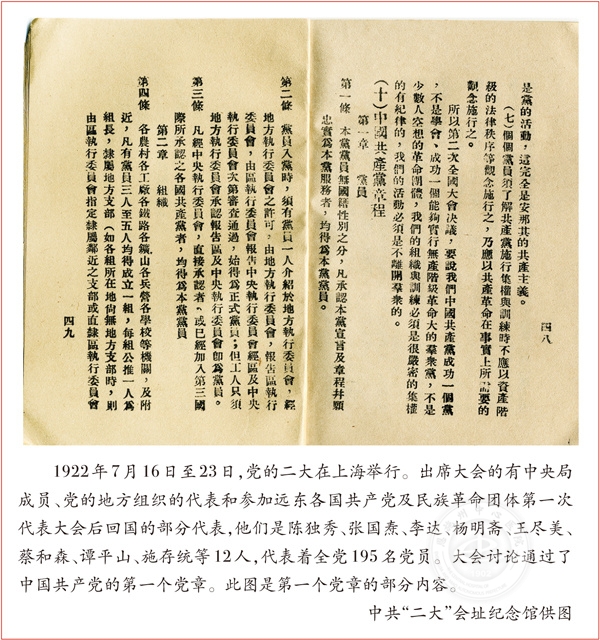 四八
是黨的活動，這完全是安那其的共產主義。
（七）個個黨員須了解共產黨施行集權與訓練時不應以資產階
級的法律秩序等觀念施行之，乃應以共產革命在事實上所需要的
觀念施行之。
所以第二次全國大會決議，要說我們中國共產黨成功一個黨
，不是學會、成功一個能夠實行無產階級革命大的羣衆黨，不是
少數人空想的革命團體，我們的組織與訓練必須是很嚴密的集權
的有紀律的，我們的活動必須是不離開羣衆的。
（十）中國共產黨章程
第一章　黨員
第一條　本黨黨員無國籍性別之分，凡承認本黨宣言及章程幷願
忠實爲本黨服務者，均得爲本黨黨員。
第二條　黨員入黨時，須有黨員一人介紹於地方執行委員會，經
地方執行委員會之許可，由地方執行委員會，報告區執行
委員會，由區執行委員會報告中央執行委員會經區及中央
執行委員會次第審查通過，始得爲正式黨員；但工人只須
地方執行委員會承認報告區及中央執行委員會卽爲黨員。
第三條　凡經中央執行委員會，直接承認者，或已經加入第三國
際所承認之各國共產黨者，均得爲本黨黨員
第二章　組織
第四條　各農村各工廠各鐵路各鑛山各兵營各學校等機關，及附
近，凡有黨員三人至五人均得成立一組，每組公推一人爲
組長，隸屬地方支部（如各組所在地尙無地方支部時，則
由區執行委員會指定隸屬鄰近之支部或直隸區執行委員會
四九
1922年7月16日至23日，党的二大在上海举行。出席大会的有中央局
成员、党的地方组织的代表和参加远东各国共产党及民族革命团体第一次
代表大会后回国的部分代表，他们是陈独秀、张国焘、李达、杨明斋、王尽美、
蔡和森、谭平山、施存统等12人，代表着全党195名党员。大会讨论通过了
中国共产党的第一个党章。此图是第一个党章的部分内容。
中共“二大”会址纪念馆供图